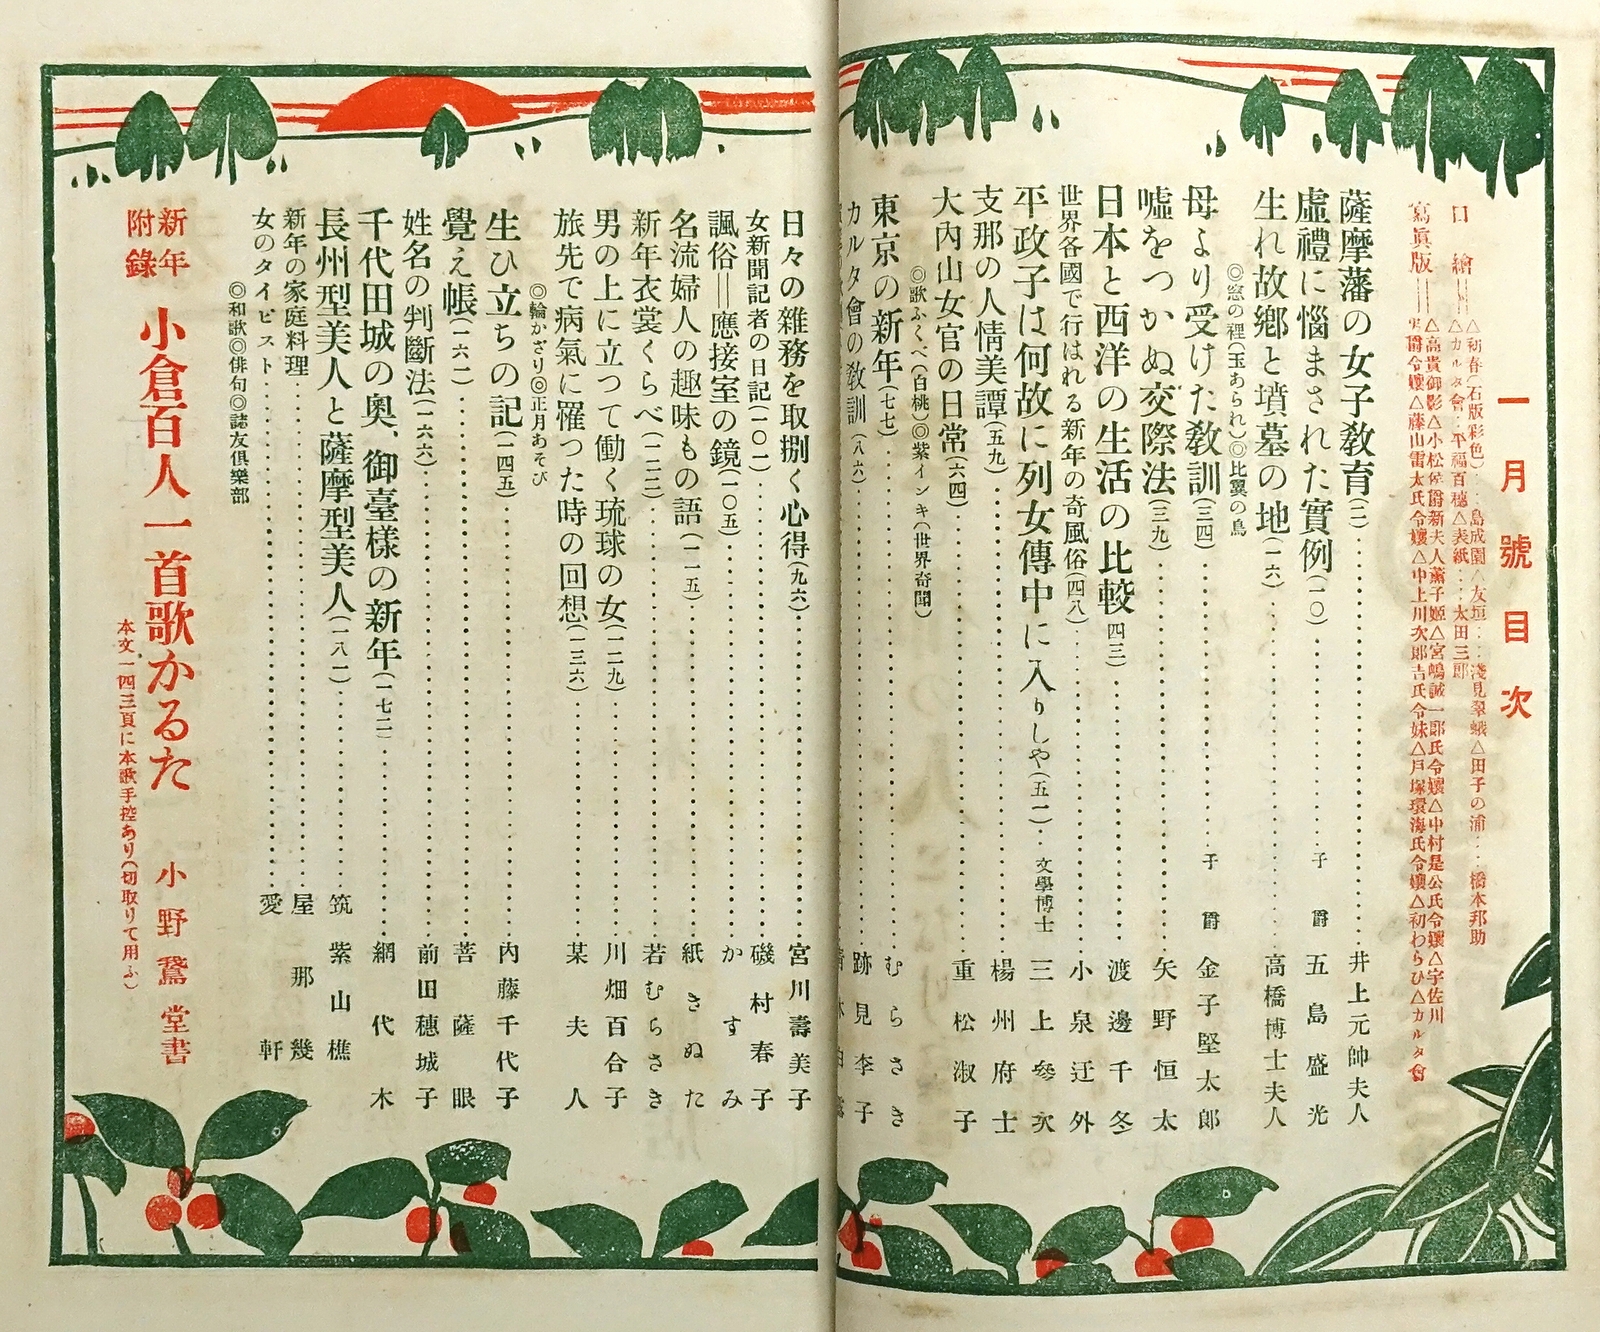 一月號目次
口繪＝△初春(石版彩色)…島成園△友垣…淺見翠蛾△田子の浦…橋本邦助
△カルタ會…平福百穗△表紙…太田三郎
寫眞版＝△高貴御影△小松侯爵新夫人薰子姬△宮嶋誠一郎氏令孃△中村是公氏令孃△宇佐川
男爵令孃△藤山雷太氏令孃△中上川次郎吉氏令妹△戶塚環海氏令孃△初わらひ△カルタ會
薩摩藩の女子敎育(二)…井上元帥夫人
虛禮に惱まされた實例(一〇)…子爵 五島盛光
生れ故鄕と墳墓の地(一六)…高橋博士夫人
◎窓の裡(玉あられ)◎比翼の鳥
母より受けた敎訓(三四)…子爵 金子堅太郎
噓をつかぬ交際法(三九)…矢野恒太
日本と西洋の生活の比較(四三)…渡邊千冬
世界各國で行はれる新年の奇風俗(四八)…小泉迂外
平政子は何故に列女傳中に入りしや(五一)…文學博士 三上參次
支那の人情美譚(五九)…楊州府士
大內山女官の日常(六四)…重松淑子
◎歌ふくべ(白桃)◎紫インキ(世界奇聞)
東京の新年(七七)…むらさき
カルタ會の敎訓(八六)…跡見李子
日々の雜務を取捌く心得(九六)…宮川壽美子
女新聞記者の日記(一〇一)…磯村春子
諷俗＝應接室の鏡(一〇五)…かすみ
名流婦人の趣味もの語(一一五)…紙きぬた
新年衣裳くらべ(一二二)…若むらさき
男の上に立つて働く琉球の女(一二九)…川畑百合子
旅先で病氣に罹つた時の回想(一三六)…某夫人
◎輪かざり◎正月あそび
生ひ立ちの記(一四五)…內藤千代子
覺え帳(一六一)…菩薩眼
姓名の判斷法(一六六)…前田穗城子
千代田城の奧、御臺樣の新年(一七二)…網代木
長州型美人と薩摩型美人(一八一)…筑紫山樵
新年の家庭料理…屋那幾
女のタイピスト…愛軒
◎和歌◎俳句◎誌友俱樂部
新年附錄 小倉百人一首歌かるた 小野鵞堂書
本文一四三頁に本歌手控あり(切取りて用ふ)